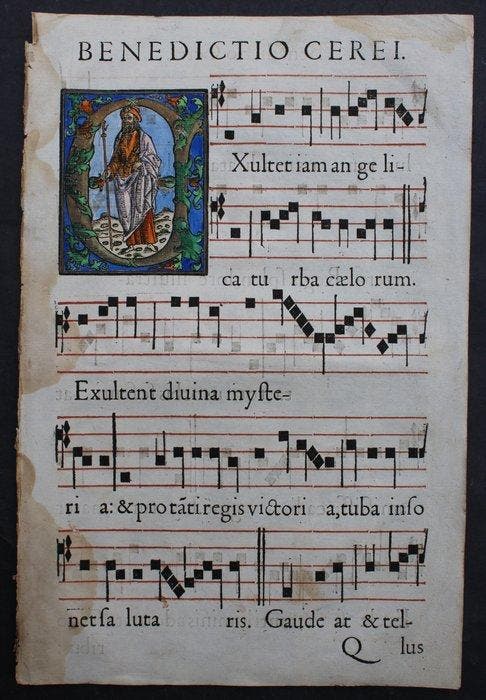 BENEDICTIO CEREI.
Xultet iam an ge li-
ca tu rba cælo rum.
Exultent diuina myſte-
ri a: & pro tāti regis victori a, tuba inſo
net ſa luta ris. Gaude at & tel-
Q lus